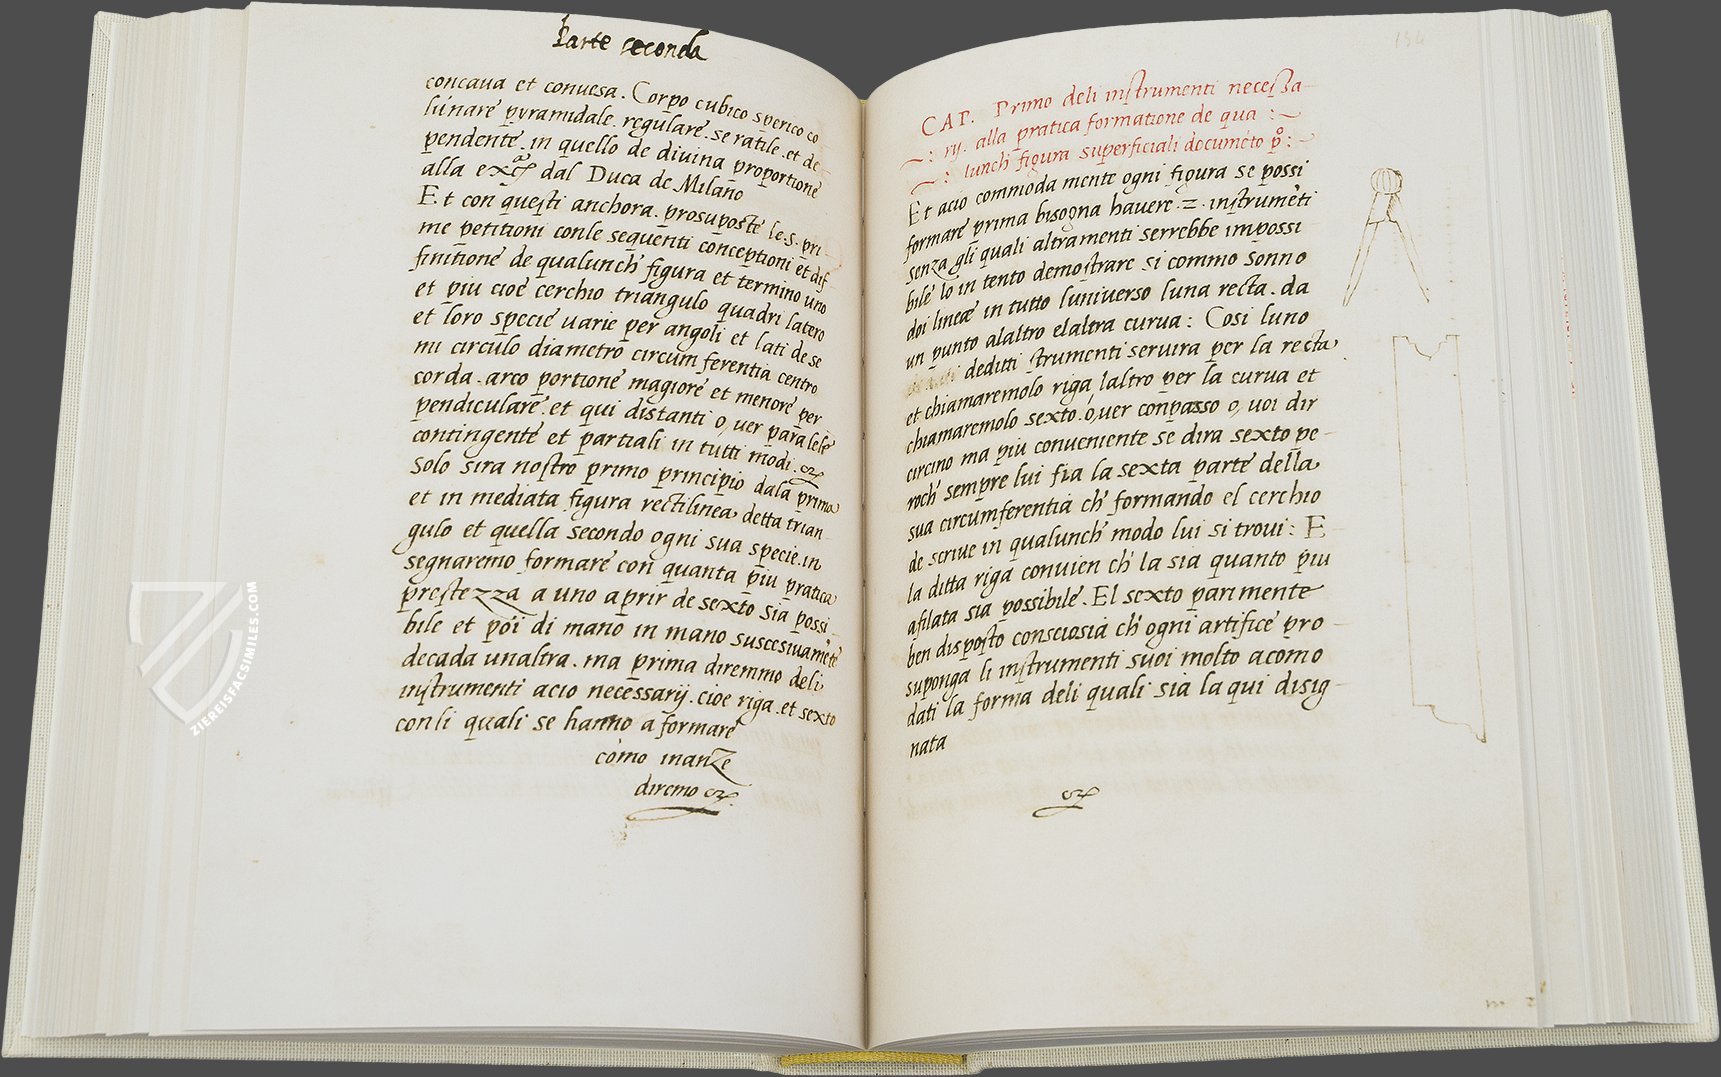 Parte seconda
concaua et conuesa. Corpo cubico sperico co
lunare pyramidale. regulare. se ratile. et de
pendente. in quello de diuina proportione
alla ex.ª dal Duca de Milano
Et con questi anchora. prosuposte le. s. pri
me petitioni conle sequenti conceptioni et dif
finitione de qualunch' figura et termino uno
et piu cioe cerchio triangulo quadri latero
et loro specie uarie per angoli et lati de se
mi circulo diametro circum ferentia centro
corda. arco portione magiore et menore per
pendiculare. et qui distanti o, uer paralele
contingente et partiali in tutti modi.
Solo sira nostro primo principio dala prima
et in mediata figura rectilinea detta trian
gulo et quella secondo ogni sua specie. in
segnaremo formare con quanta piu pratica
prestezza a uno aprir de sexto sia possi
bile et poi di mano in mano succesiuamēte
decada unaltra. ma prima diremmo deli
instrumenti acio necessarij. cioe riga. et sexto
conli quali se hanno a formare
como inanze
diremo
134
CAP. Primo deli instrumenti necessa
rij. alla pratica formatione de qua
lunch figura superficiali documēto p°:
Et acio commoda mente ogni figura se possi
formare prima bisogna hauere .2. instrumēti
senza gli quali altramenti serrebbe impossi
bile Io in tento demostrare si commo sonno
doi lineae in tutto luniuerso luna recta. da
un punto alaltro elaltra curua: Cosi luno
deditti strumenti seruira per la recta
et chiamaremolo riga laltro per la curua et
chiamaremolo sexto. o, uer conpasso o, uoi dir
circino ma piu conueniente se dira sexto pe
roch' sempre lui fia la sexta parte della
sua circumferentia ch' formando el cerchio
de scriue in qualunch' modo lui si troui: E
la ditta riga conuien ch' la sia quanto piu
afilata sia possibile. El sexto parimente
ben disposto consciosia ch' ogni artifice pro
suponga li instrumenti suoi molto acomo
dati la forma deli quali sia la qui disig
nata
ZIEREISFACSIMILES.COM